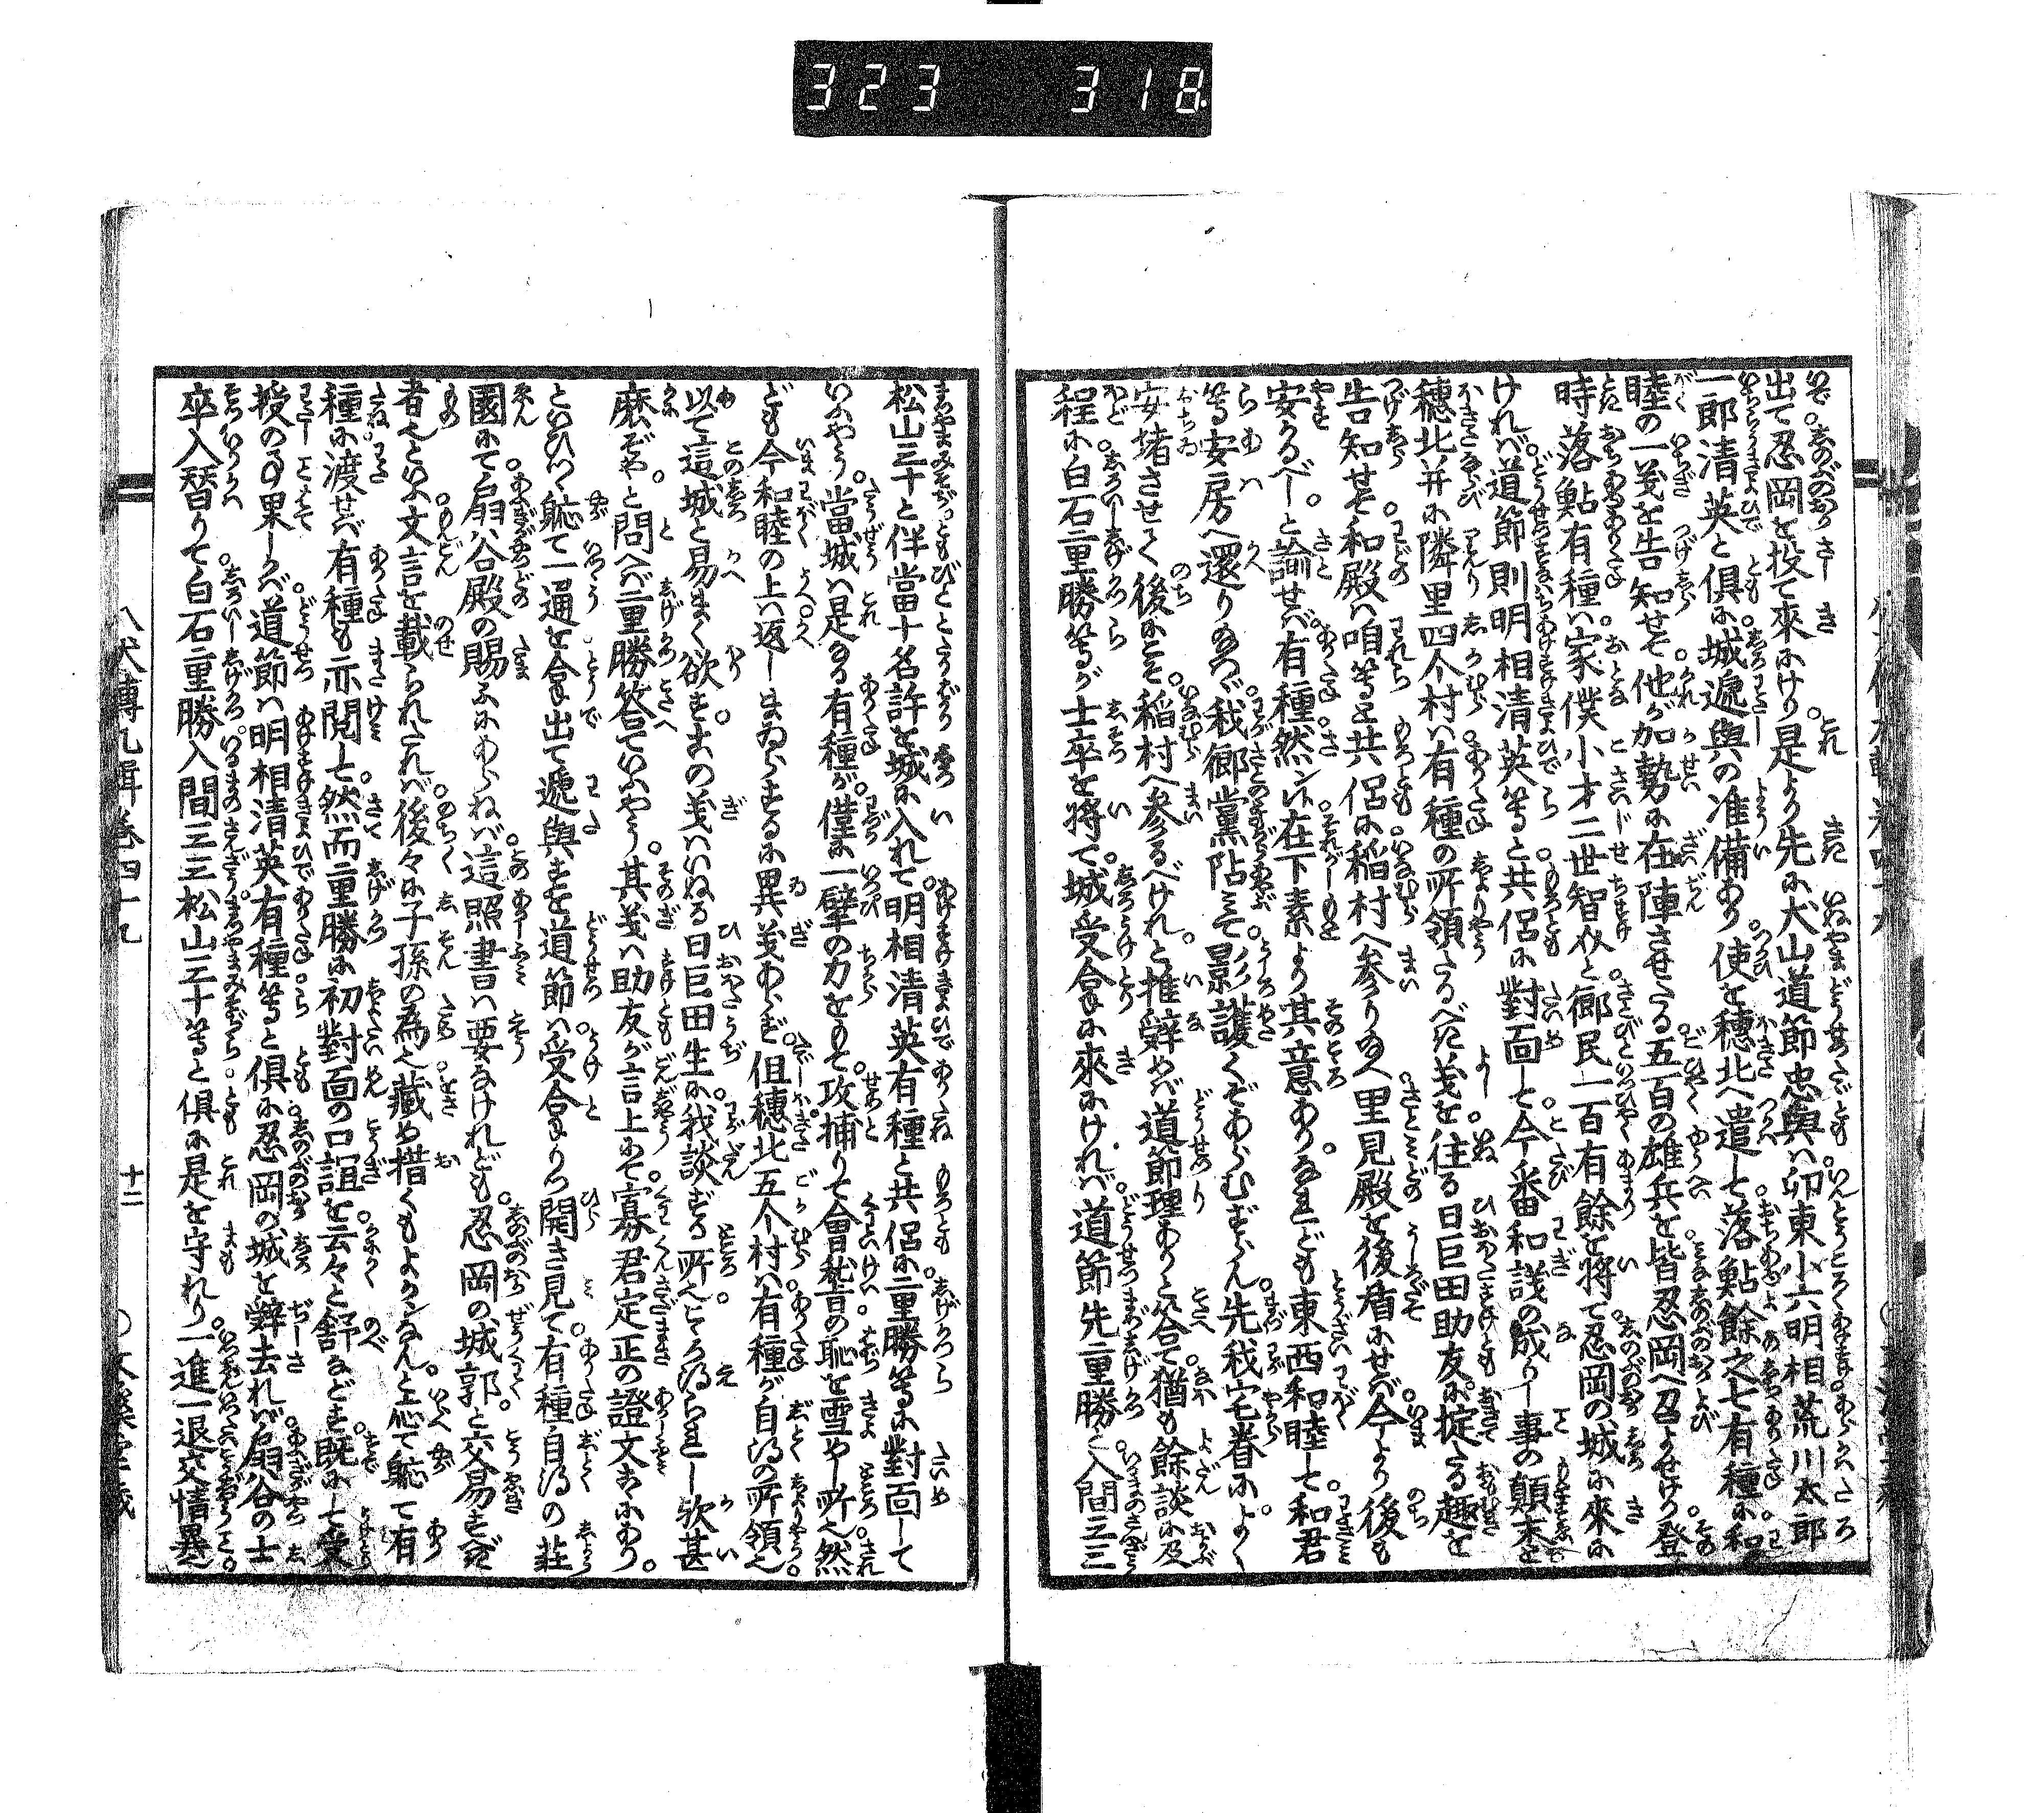 323 318
出て忍岡を投て來にけり是より先に犬山道節忠與ハ印東小六明相荒川太郎
一郎清英と倶に城遞與の准備あり使を穗北へ遣して落鮎餘之七有種に和
睦の一義を告知せて他が加勢に在陣させたる五百の雄兵を皆忍岡へ召よせけり登
時落鮎有種ハ家僕小才二世智介と郷民一百有餘を將て忍岡の城に來に
ければ道節則明相清英等と共侶に對面して今番和議の成りし事の顛末を
穗北并に隣里四个村ハ有種の所領たるべき義を往る日巨田助友に掟たる趣を
告知せて和殿ハ咱等と共侶に稲村へ参りて里見殿を後盾にせバ今より後も
安かるべしと諭せバ有種然ン候在下素より其意ありなれども東西和睦して和君
等安房へ還り給ハヾ我郷黨阽みて影護くぞあらむずらん先我宅眷によく
安堵させて後にこそ稲村へ参るべけれと推辞めバ道節理ありと答て猶も餘談に及
程に白石重勝等が士卒を將て城受拿に來にけれバ道節先重勝と入間三三
松山三十と伴當十名許を城に入れて明相清英有種と共侶に重勝等に對面して
いふやう當城ハ是なる有種が僅に一臂の力をもて攻捕りて會稽の恥を雪やし所也然
ども今和睦の上ハ返しまゐらするに異義あらず但穗北五个村ハ有種が自得の所領也
以て這城と易まく欲すこの義ハいぬる日巨田生に我談ずる所也こゝろ得られし歟甚
麼ぞやと問へバ重勝答ていふやう其義ハ助友が言上にて寡君定正の證文こゝにあり
といひつゝ軈て一通を拿出て遞與すを道節ハ受拿りつ開き見て有種自得の莊
國にて扇谷殿の賜ふにあらねバ這照書ハ要なけれども忍岡の城郭と交易すべき
者也といふ文言を載られたれバ後々に子孫の為に藏め措くもよかンなんと心て軈て有
種に渡せバ有種も亦閲して然而重勝に初對面の口誼を云々と舒などす既にして受
授の事果しかバ道節ハ明相清英有種等と倶に忍岡の城を辭去れバ扇谷の士
卒入替りて白石重勝入間三三松山三十等と倶に是を守れり一進一退交情異に
八犬傳九輯巻四十九
十二